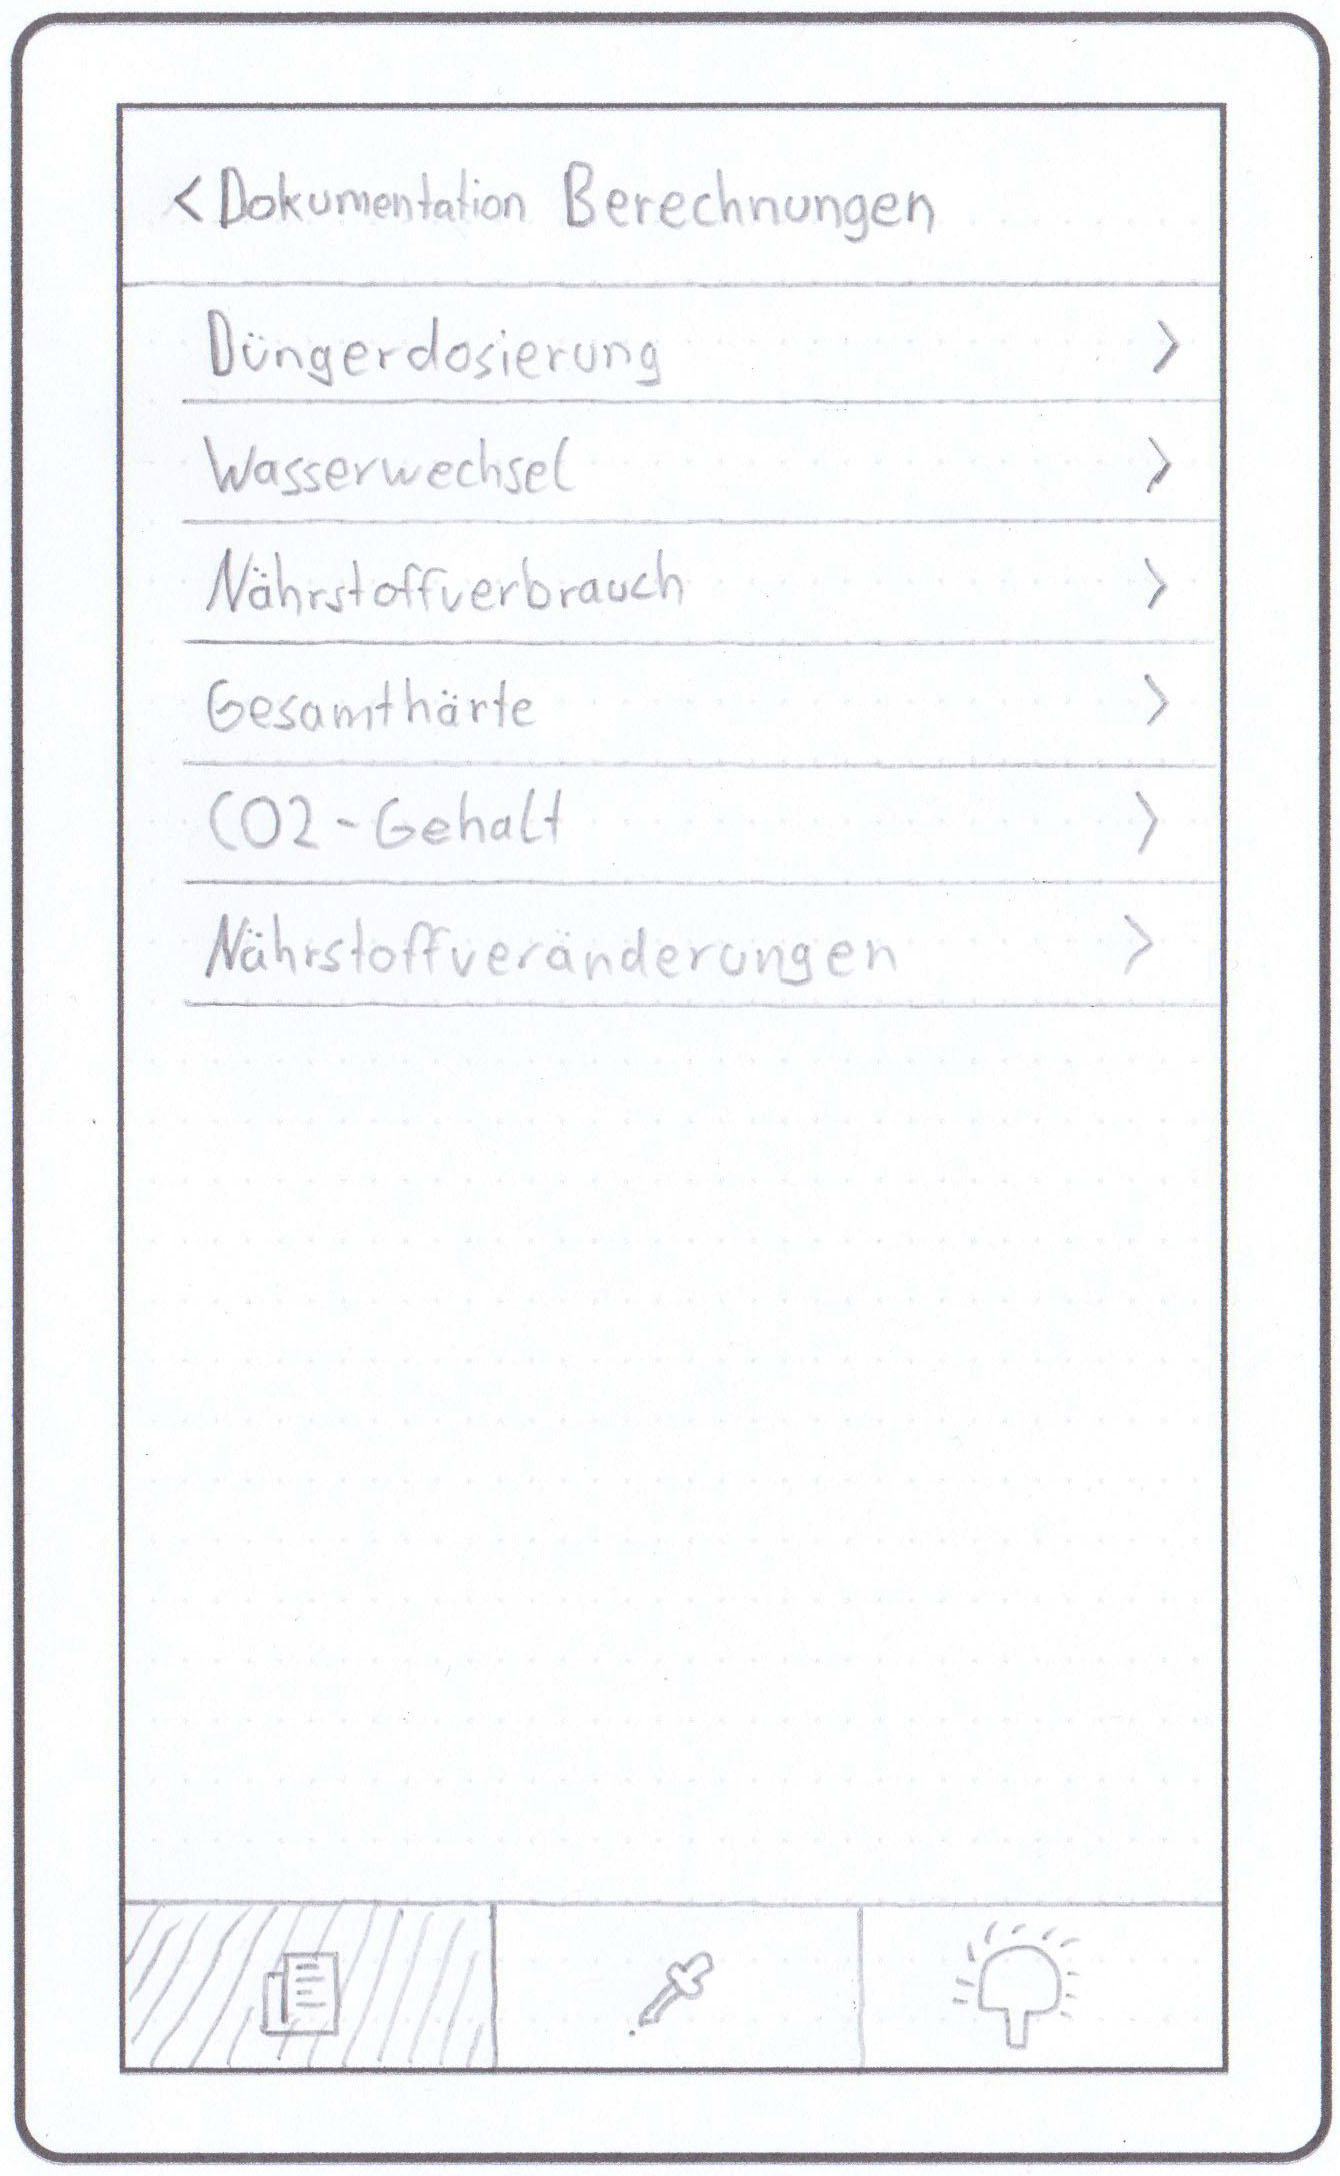 < Dokumentation Berechnungen
Düngerdosierung >
Wasserwechsel >
Nährstoffverbrauch >
Gesamthärte >
CO2-Gehalt >
Nährstoffveränderungen >